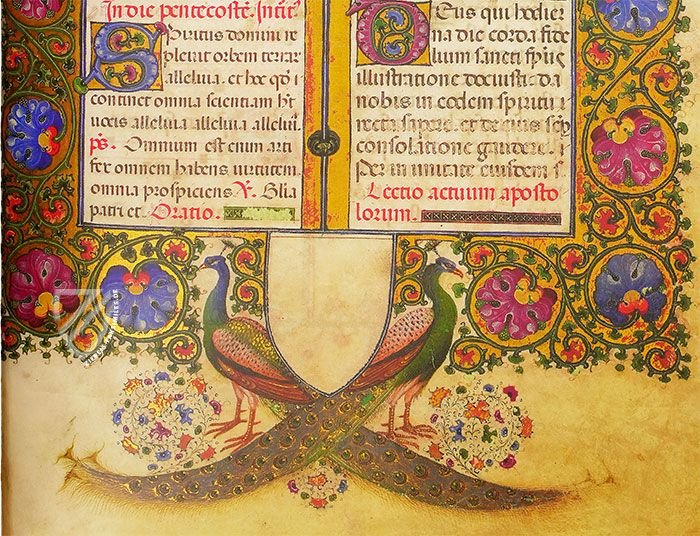 In die pentecostē. Intīt̄
Spiritus domini re
pleuit orbem terrar̄
alleluia. et hoc qd̄
continet omnia scientiam ht̄
uocis alleluia alleluia allelui.
ps. Omnium est enim arti
fex omnem habens uirtutem
omnia prospiciens V. Glīa
patri et. Oratio.
Deus qui hodier
na die corda fide
lium sancti spūs
illustratione docuisti. da
nobis in eodem spiritu
recta sapere. et de eius sep̄
consolatione gaudere.
Per in unitate eiusdem s.
Lectio actuum aposto
lorum.